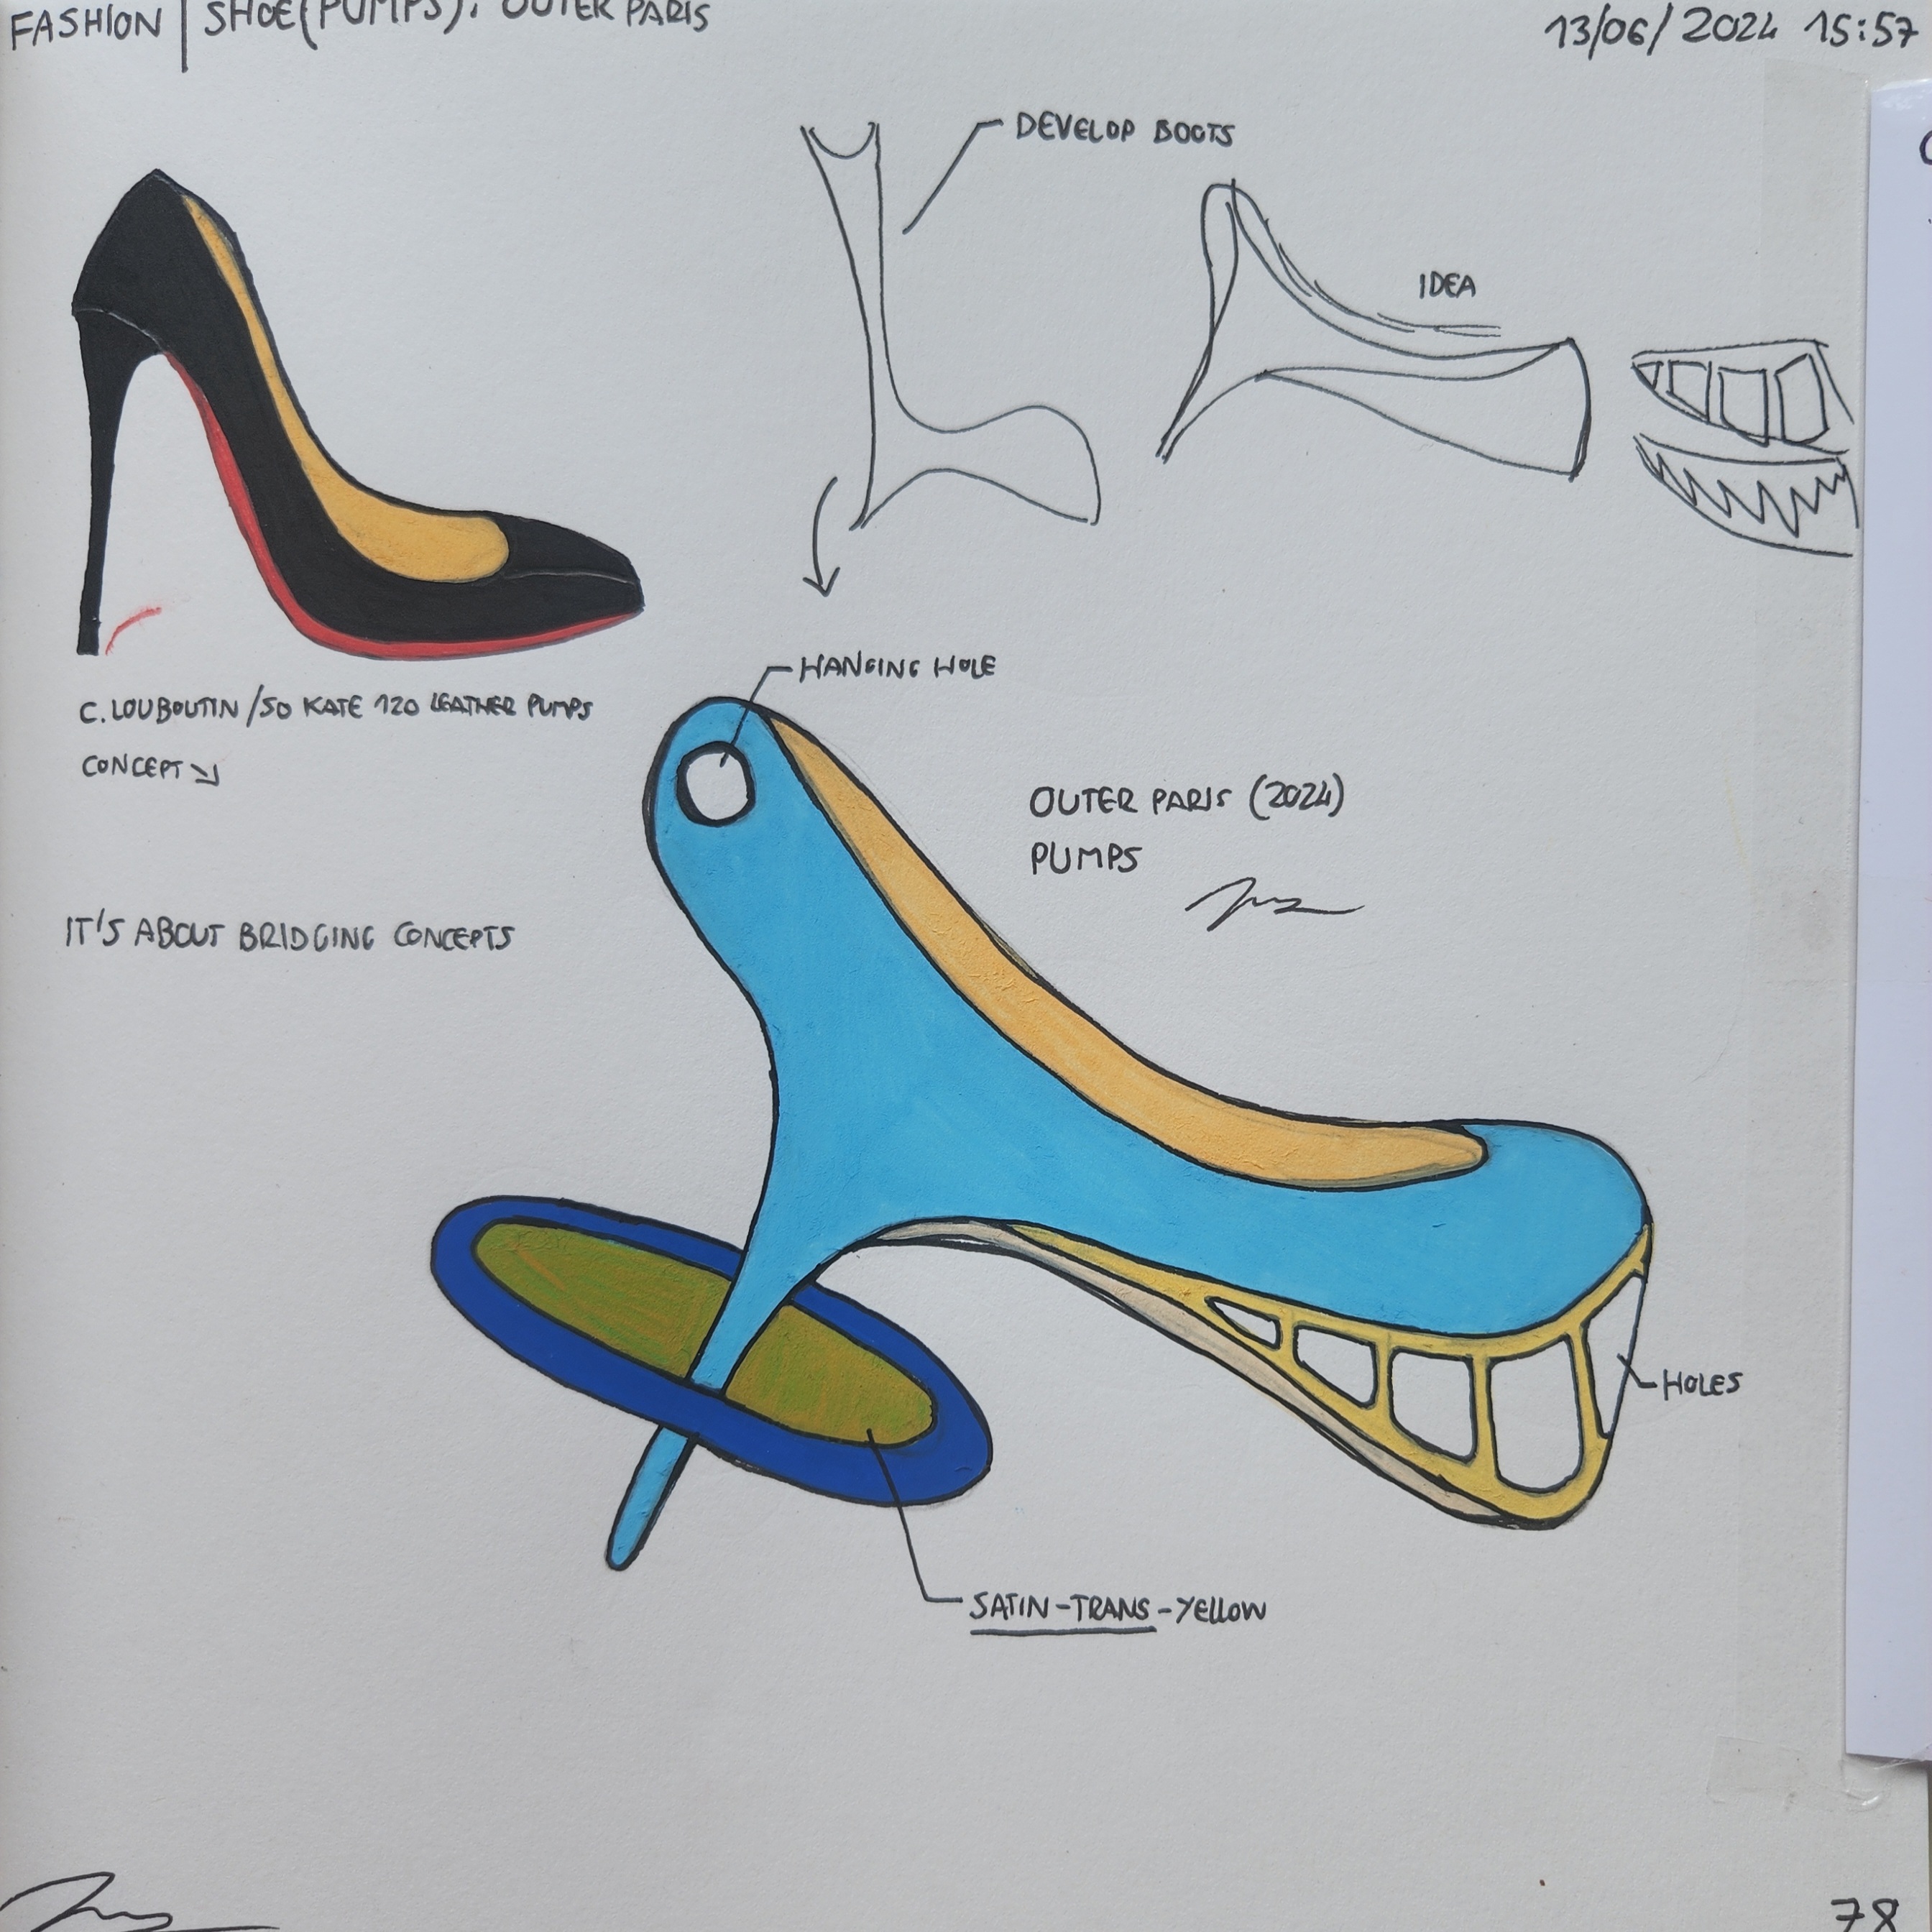 FASHION | SHOE(PUMPS): OUTER PARIS
13/06/2024 15:57
DEVELOP BOOTS
IDEA
HANGING HOLE
C. LOUBOUTIN / SO KATE 120 LEATHER PUMPS
CONCEPT
OUTER PARIS (2024)
PUMPS
IT'S ABOUT BRIDGING CONCEPTS
HOLES
SATIN-TRANS-YELLOW
78